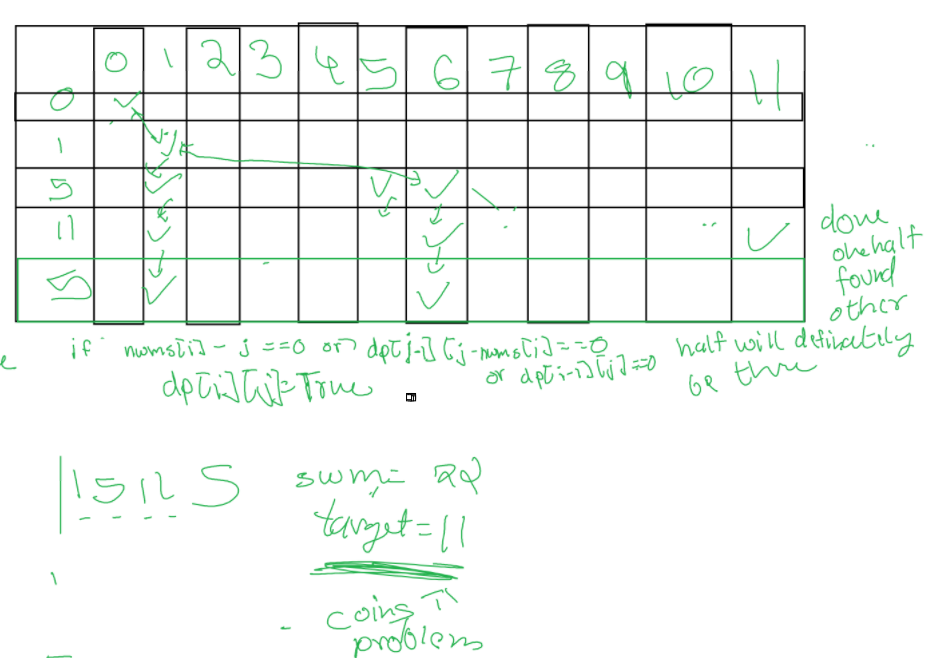 0 1 2 3 4 5 6 7 8 9 10 11
0
1
5
11
5
done
one half
found
other
half will definetely
be there
if nums[i] - j ==0 or dp[i-1][j-nums[i]]==0
or dp[i-1][j]==0
dp[i][j]=True
e
1 5 11 5
sum= 22
target=11
coins
problem